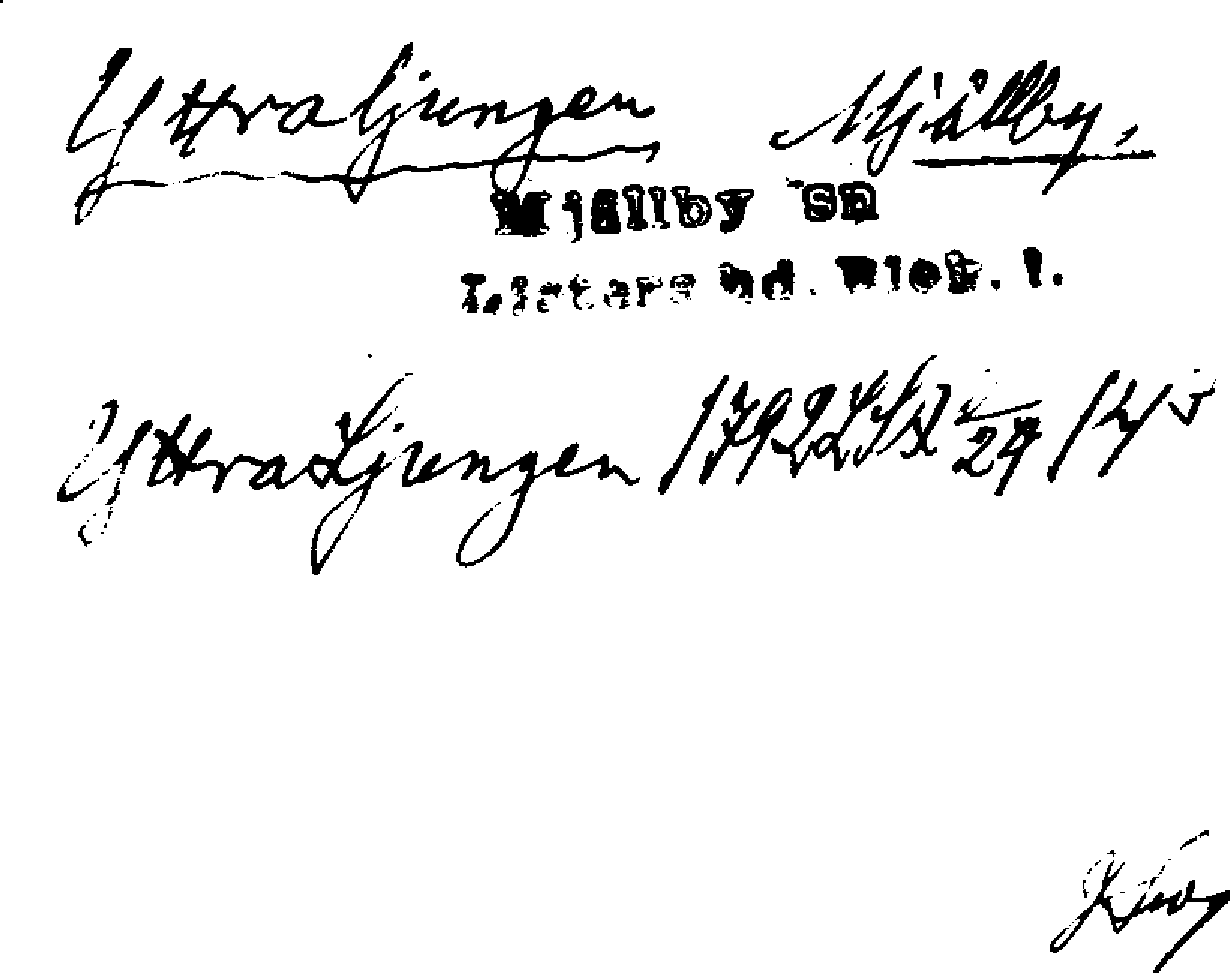 Yttra ljungen Mjällby,
Mjällby sn
Listers hd. Blek. l.
Yttra Ljungen 1792 LSA